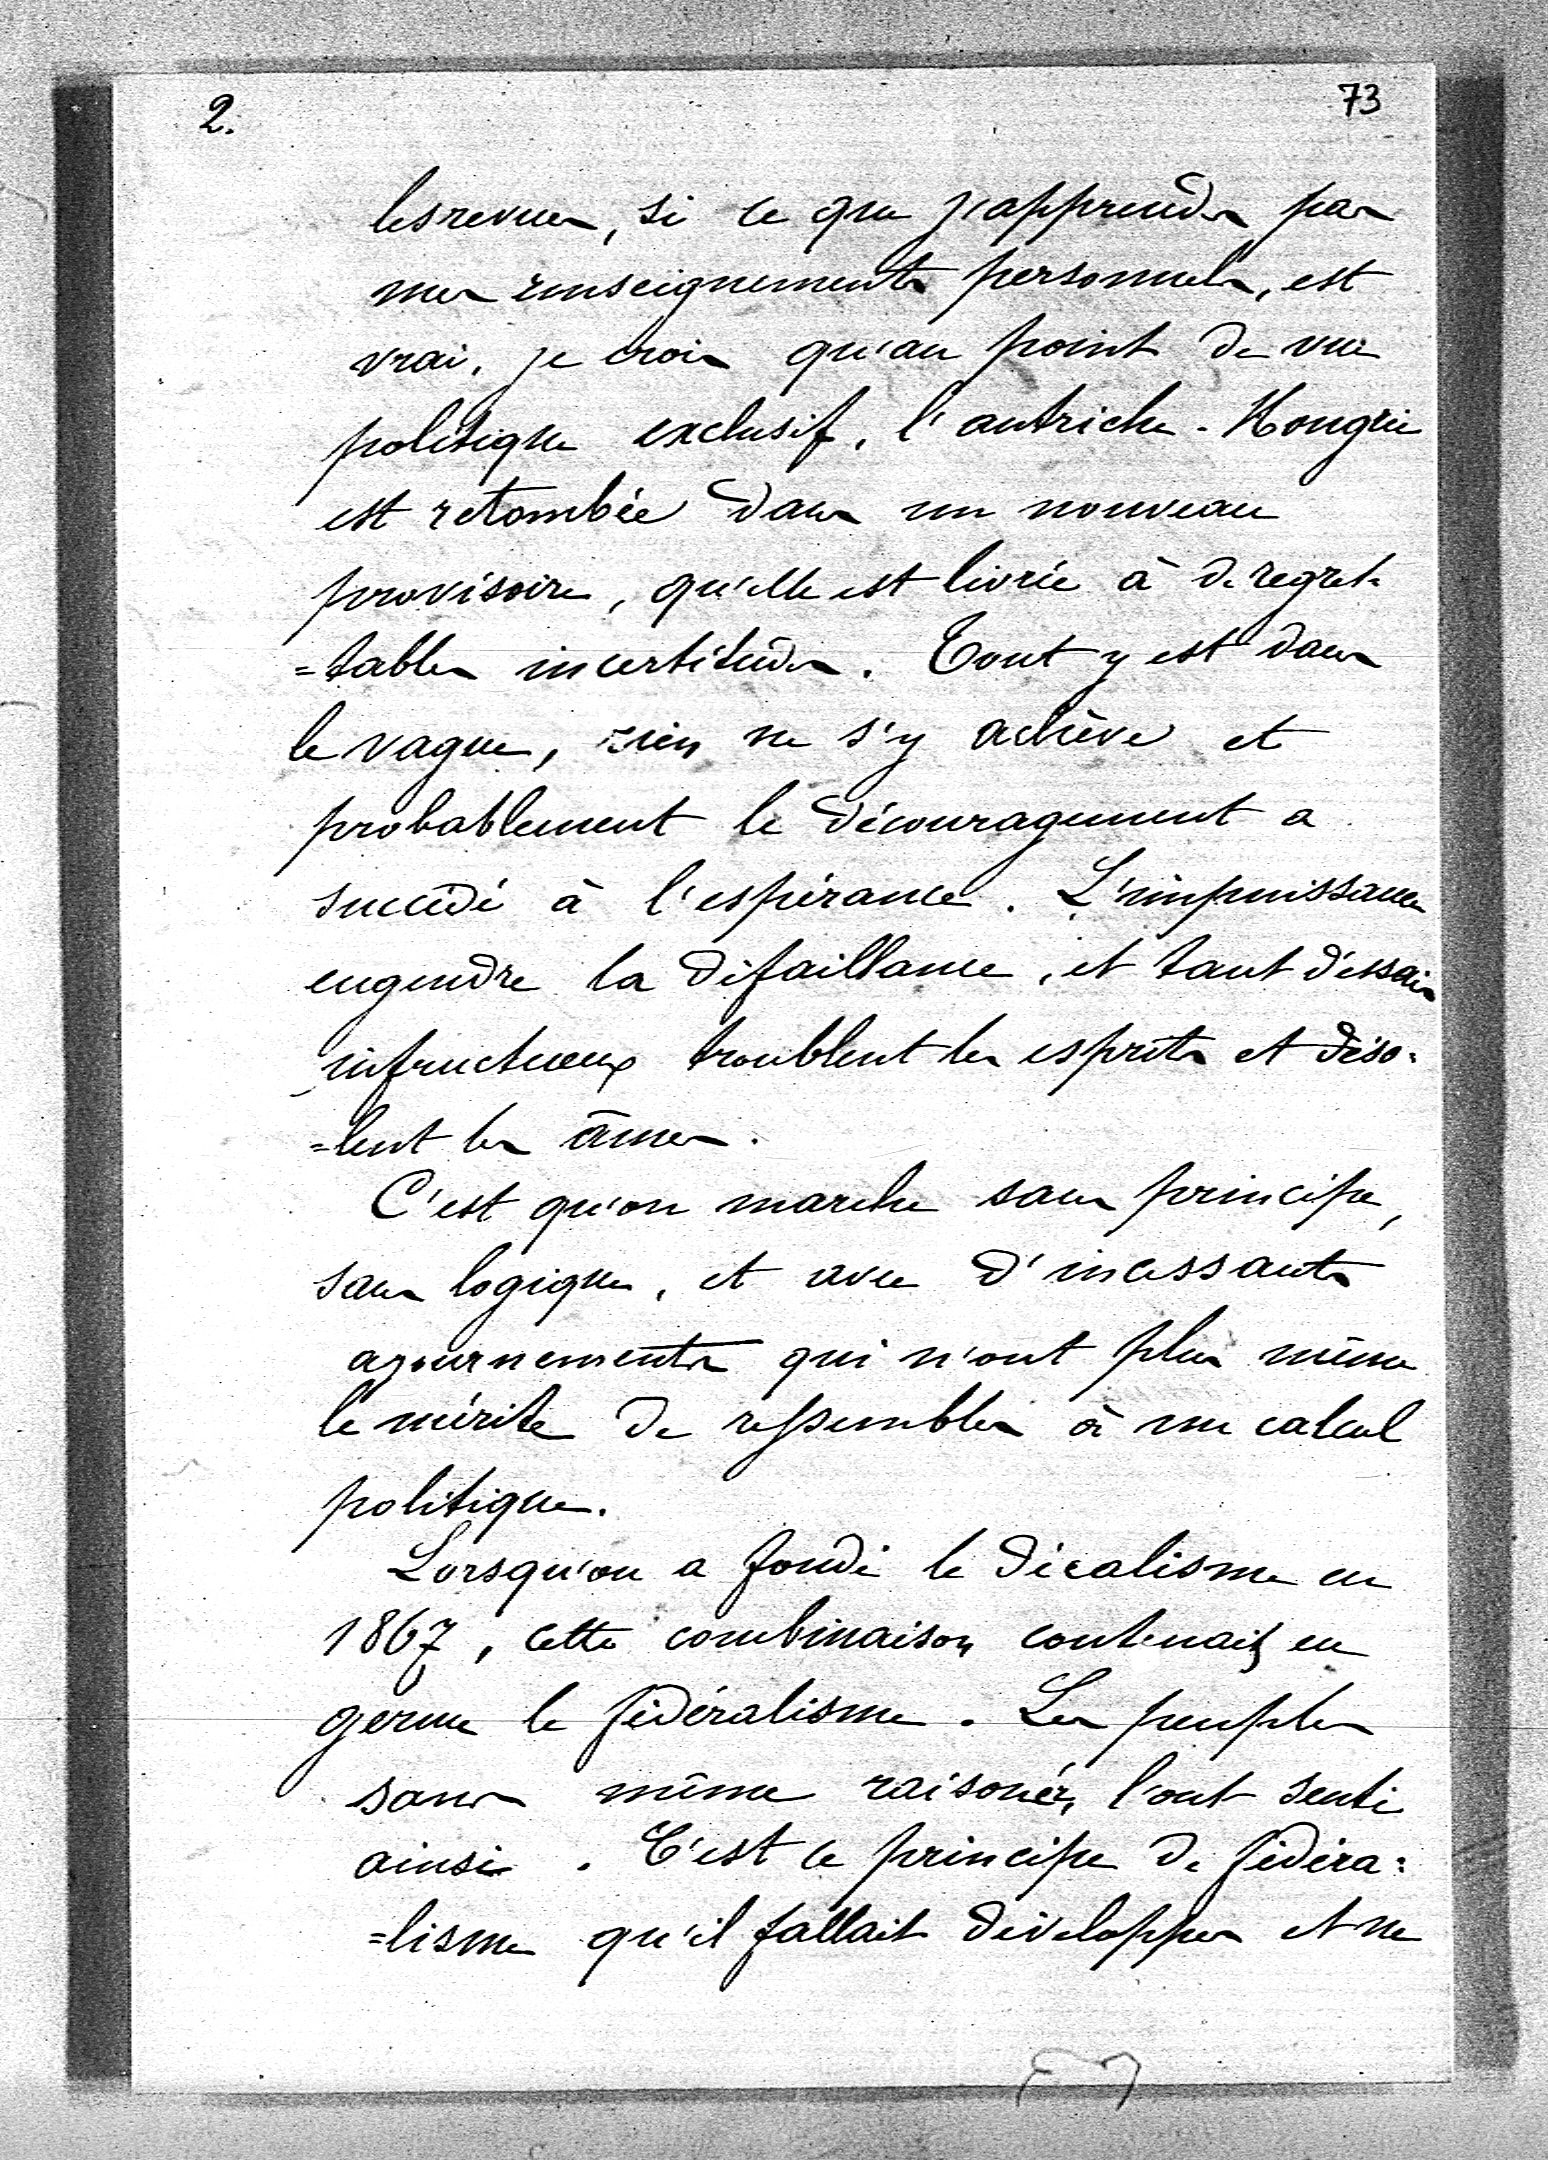 2.
73
les revues, si ce que j'apprends par
mes renseignements personnels, est
vrai, je crois qu'au point de vue
politique exclusif, l'autriche-Hongrie
est retombée dans un nouveau
provisoire, qu'elle est livrée à de regret-
=tables incertitudes. Tout y est dans
le vague, rien ne s'y achève et
probablement le découragement a
succédé à l'espérance. L'impuissance
engendre la défaillance, et tant d'essais
infructueux troublent les esprits et déso=
=lent les âmes.
C'est qu'on marche sans principe,
sans logique, et avec d'incessants
ajournements qui n'ont plus même
le mérite de ressembler à un calcul
politique.
Lorsqu'on a fondé le déalisme en
1867, cette combinaison contenait en
germe le fédéralisme. Les peuples
sans même raisonér, l'ont senti
ainsi. C'est ce principe de fédéra=
=lisme qu'il fallait développer et ne